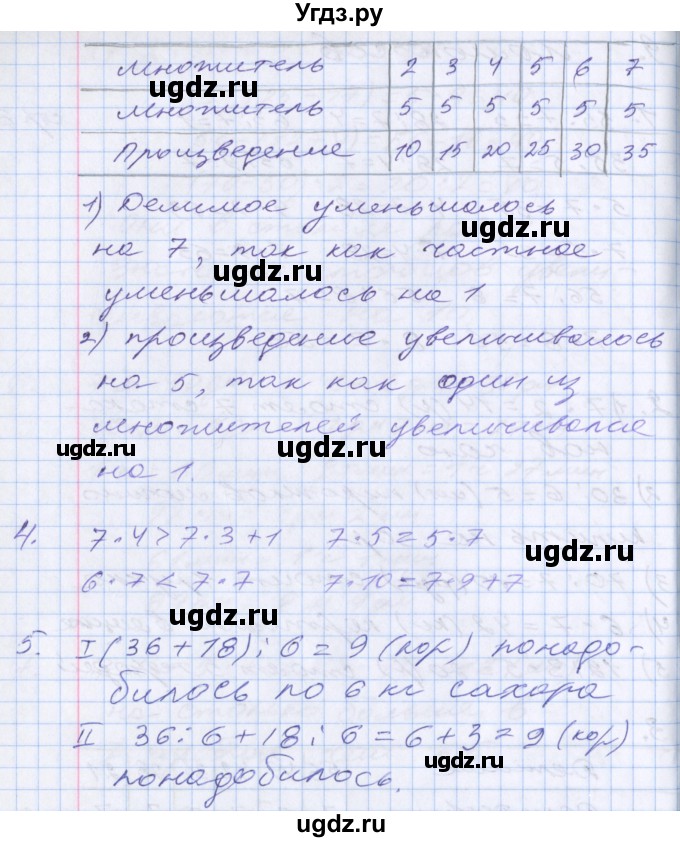 Угдз.ру
множитель 2 3 4 5 6 7
множитель 5 5 5 5 5 5
Произведение 10 15 20 25 30 35
1) Делимое уменьшалось
на 7, так как частное
уменьшалось на 1
2) произведение увеличивалось
на 5, так как один из
множителей увеличивался
на 1.
4. 7·4 > 7·3+1 7·5 = 5·7
6·7 < 7·7 7·10 = 7·9+7
5. I (36+18) : 6 = 9 (кор) понадо-
билось по 6 кг сахара
II 36:6+18:6=6+3=9 (кор)
понадобилось.
ugdz.ru
ugdz.ru
ugdz.ru
ugdz.ru
ugdz.ru
ugdz.ru
ugdz.ru
ugdz.ru
ugdz.ru
ugdz.ru
ugdz.ru
ugdz.ru